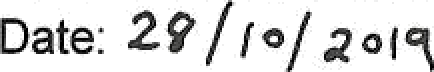 Date: 28/10/2019